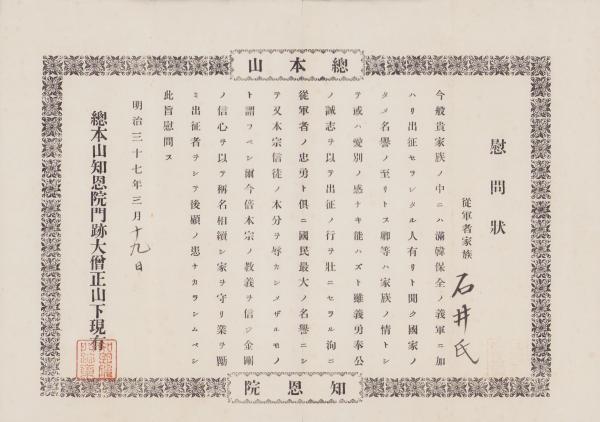 總本山
慰問狀
從軍者家族
石井氏
今般貴家族ノ中ニハ滿韓保全ノ義軍ニ加
ハリ出征セラレタル人有リト聞ク國家ノ
タメ名譽ノ至リトス卿等ハ家族ノ情トシ
テ或ハ愛別ノ感ナキ能ハズト雖義勇奉公
ノ誠志ヲ以テ出征ノ行ヲ壯ニセラル洵ニ
從軍者ノ忠勇ト俱ニ國民最大ノ名譽ニシ
テ又本宗信徒ノ本分ヲ辱カシメザルモノ
ト謂フベシ爾今倍本宗ノ教義ヲ信ジ金剛
ノ信心ヲ以テ稱名相續シ家ヲ守リ業ヲ勵
ミ出征者ヲシテ後顧ノ患ナカラシムベシ
此旨慰問ス
明治三十七年三月十九日
總本山知恩院門跡大僧正山下現有
知恩院